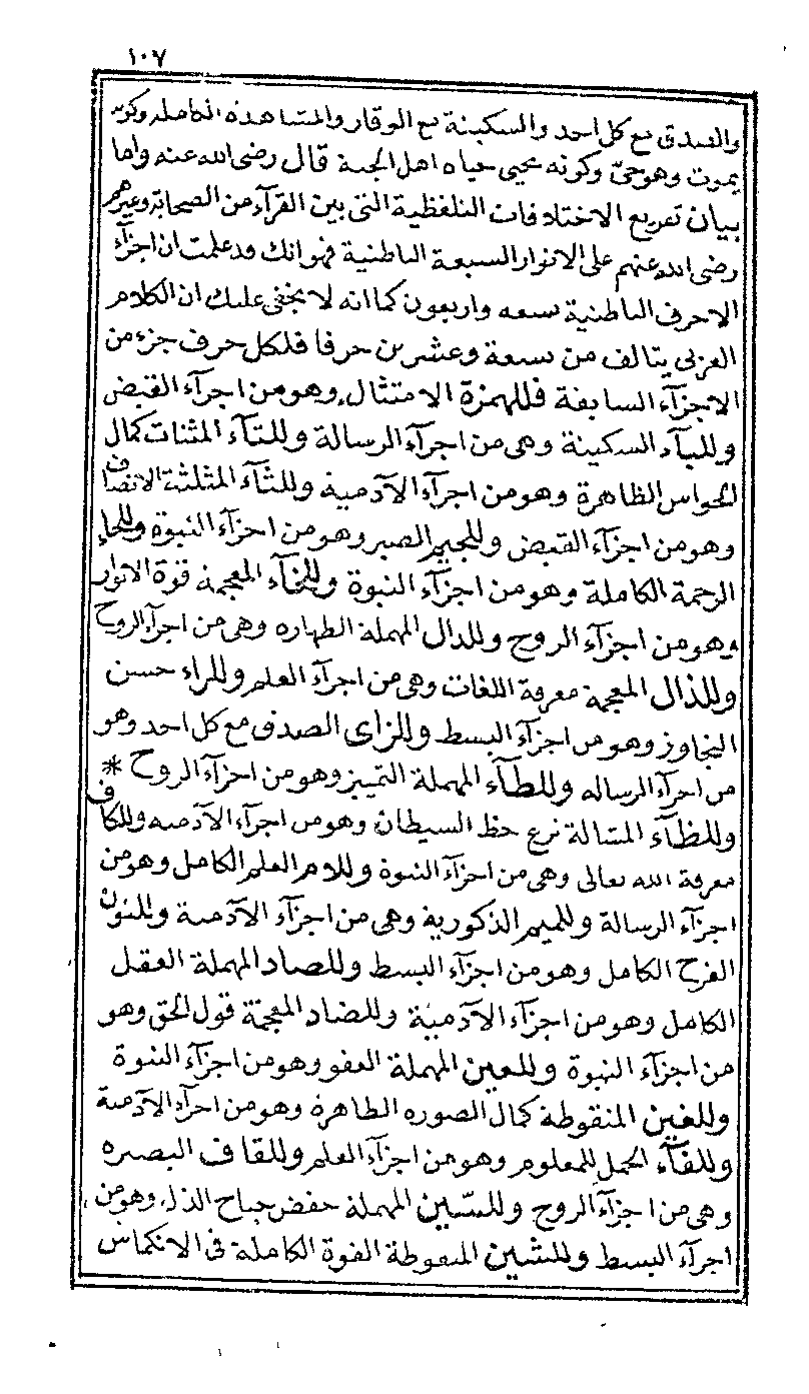 ١٠٧
والصدق مع كل احد والسكينة مع الوقار والمشاهدة الكاملة وكونه
يموت وهو حىّ وكونه يحيى حياه اهل الجنة قال رضى الله عنه واما
بيان تفريع الاختلافات التلفظية التى بين القرآء من الصحابة وغيرهم
رضى الله عنهم على الانوار السبعة الباطنية فهو انك قد علمت ان اجزآء
الاحرف الباطنية تسعه واربعون كما انه لا يخفى عليك ان الكلام
العربى يتالف من تسعة وعشرين حرفا فلكل حرف جزء من
الاجزآء السابقة فللهمزة الامتثال وهو من اجزآء القبض
وللبآء السكينة وهى من اجزآء الرسالة وللتآء المثنات كمال
الحواس الظاهرة وهو من اجزآء الآدمية وللثآء المثلثة الانصاف
وهو من اجزآء القبض وللجيم الصبر وهو من اجزآء النبوة وللحاء
الرحمة الكاملة وهو من اجزآء النبوة وللخآء المعجمة قوة الانوار
وهو من اجزآء الروح وللدال المهملة الطهاره وهى من اجزآء الروح
وللذال المعجمة معرفة اللغات وهى من اجزآء العلم وللراء حسن
التجاوز وهو من اجزآء البسط وللزاى الصدق مع كل احد وهو
من اجزآء الرساله وللطآء المهملة التمييز وهو من اجزآء الروح *
وللظآء المشالة نزع حظ الشيطان وهو من اجزآء الآدميه وللكاف
معرفة الله تعالى وهى من اجزآء النبوة وللام العلم الكامل وهو من
اجزآء الرسالة وللميم الذكورية وهى من اجزآء الآدمية وللنون
الفرح الكامل وهو من اجزآء البسط وللصاد المهملة العقل
الكامل وهو من اجزآء الآدمية وللضاد المعجمة قول الحق وهو
من اجزآء النبوة وللعين المهملة العفو وهو من اجزآء النبوة
وللغين المنقوطة كمال الصوره الظاهرة وهو من اجزآء الآدمية
وللفآء الحمل للمعلوم وهو من اجزآء العلم وللقاف البصيره
وهى من اجزآء الروح وللسّين المهملة خفض جناح الذل وهو من
اجزآء البسط وللشين المنقوطة القوة الكاملة فى الانكماش